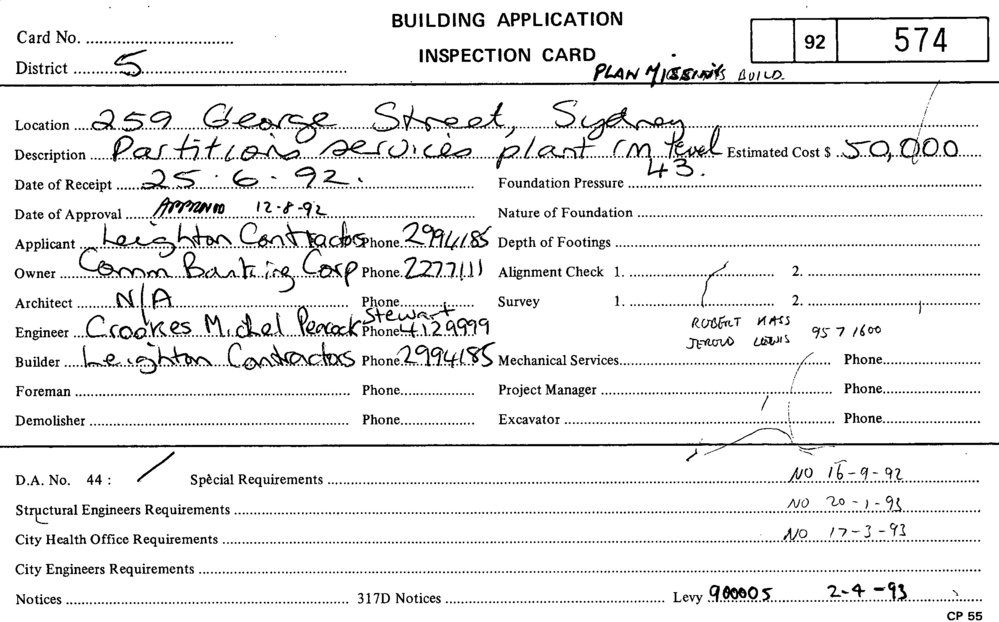 BUILDING APPLICATION
Card No.
INSPECTION CARD
92 574
District 5
PLAN BUILD.
Location 259 George Street, Sydney
Description Partitions services plant rm level 43. Estimated Cost $ 50,000
Date of Receipt 25.6.92. Foundation Pressure
Date of Approval APPROVED 12-8-92 Nature of Foundation
Applicant Leighton Contractors Phone 2994185 Depth of Footings
Owner Comm Banking Corp Phone 2277111 Alignment Check 1. 2.
Architect N/A Phone Survey 1. 2.
Engineer Crookes Michel Peacock Stewart Phone 4129999
ROBERT MASS
JEROLD LEWIS 957 1600
Builder Leighton Contractors Phone 2994185 Mechanical Services Phone
Foreman Phone Project Manager Phone
Demolisher Phone Excavator Phone
D.A. No. 44 : / Special Requirements NO 16-9-92
Structural Engineers Requirements NO 20-1-93
City Health Office Requirements NO 17-3-93
City Engineers Requirements
Notices 317D Notices Levy 900005 2-4-93
CP 55